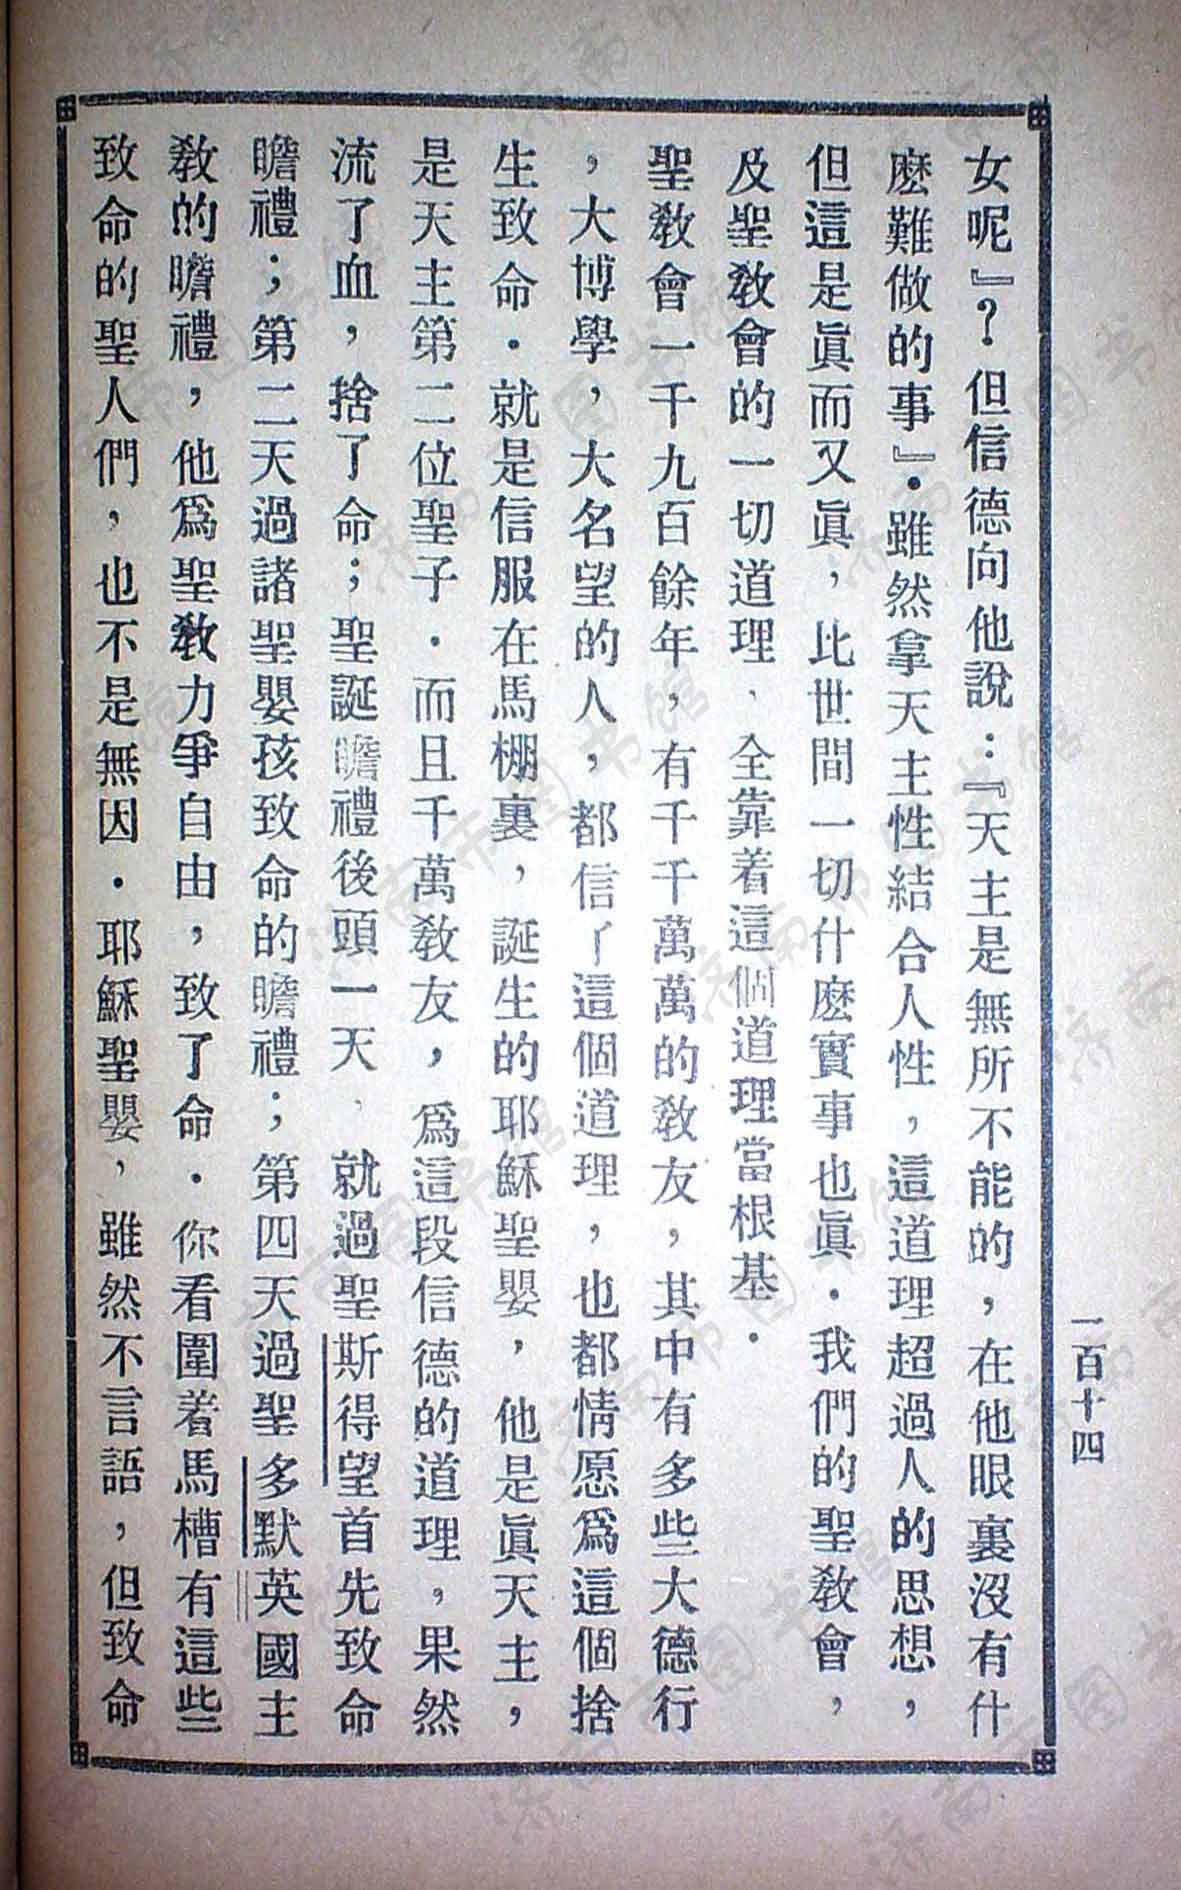 女呢』？但信德向他說：『天主是無所不能的，在他眼裏沒有什
麽難做的事』．雖然拿天主性結合人性，這道理超過人的思想，
但這是眞而又眞，比世間一切什麽實事也眞．我們的聖敎會，
及聖敎會的一切道理，全靠着這個道理當根基．
聖敎會一千九百餘年，有千千萬萬的敎友，其中有多些大德行
，大博學，大名望的人，都信了這個道理，也都情愿爲這個捨
生致命．就是信服在馬棚裏，誕生的耶穌聖嬰，他是眞天主，
是天主第二位聖子．而且千萬敎友，爲這段信德的道理，果然
流了血，捨了命；聖誕瞻禮後頭一天，就過聖斯得望首先致命
瞻禮；第二天過諸聖嬰孩致命的瞻禮；第四天過聖多默英國主
敎的瞻禮，他爲聖敎力爭自由，致了命．你看圍着馬槽有這些
致命的聖人們，也不是無因．耶穌聖嬰，雖然不言語，但致命
一百十四
济南市图书馆